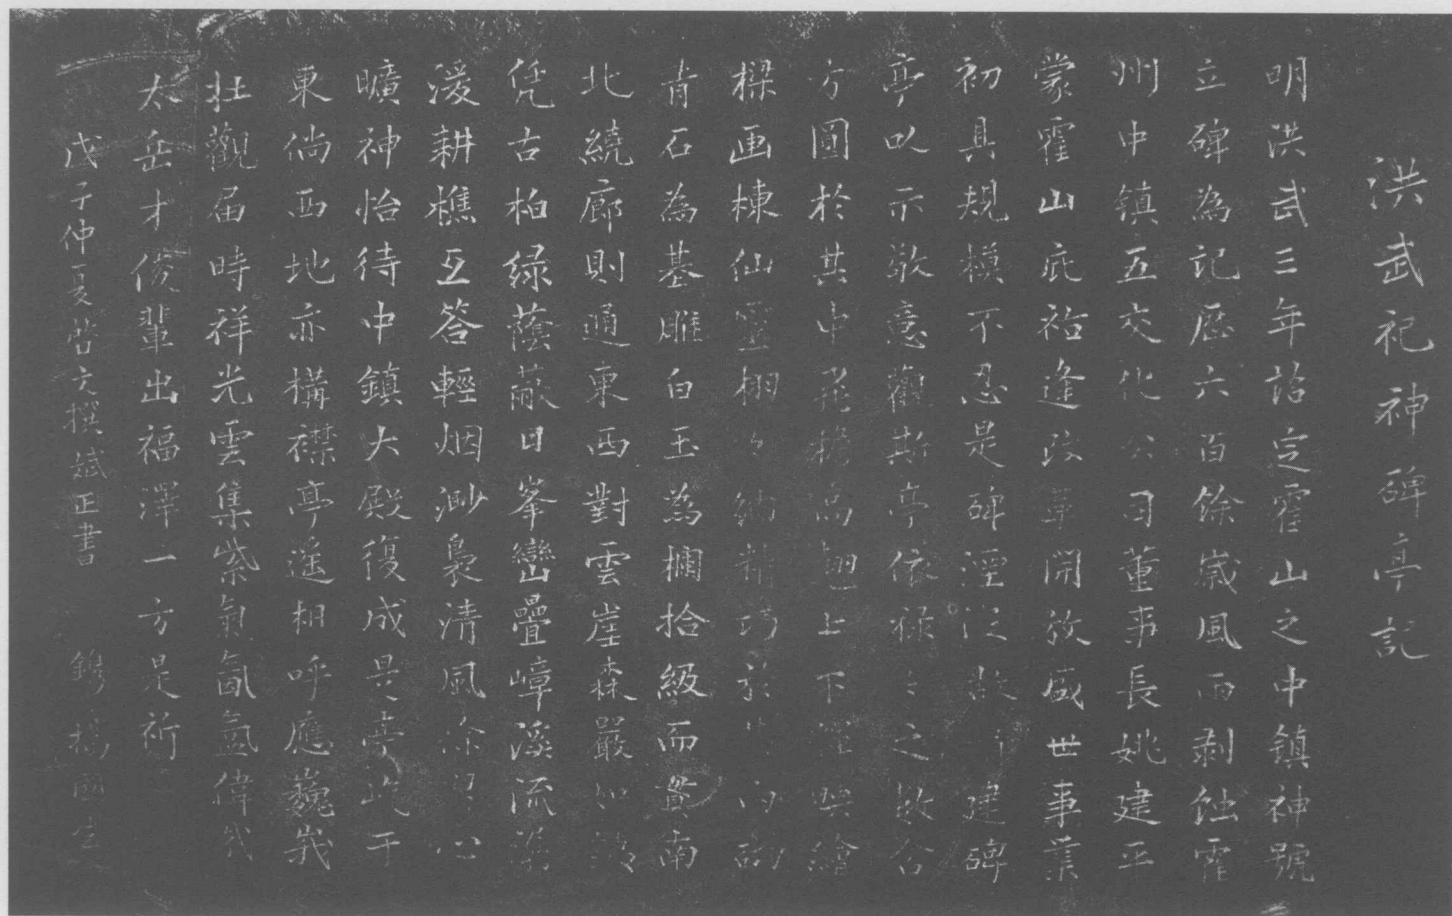 洪武祀神碑亭記
明洪武三年詔定霍山之中鎮神號
立碑為記歷六百餘歲風雨剥蝕霍
州中镇五文化公司董事長姚建平
蒙霍山庇祐逢改革開放盛世事業
初具規模不忍是碑湮泛故 建碑
亭以示敬意觀斯亭依禄 之 合
方圓於其中飛檐高翹上下 映繪
樑画棟仙靈栩 納精巧於 内
青石為基雕白玉為欄拾級而 南
北繞廊則通東西對雲崖森嚴如
凭古柏绿蔭蔽日峯巒疊嶂溪流
湲耕樵互答輕烟渺裊清風徐 心
曠神怡待中鎮大殿復成是亭屹于
東倘西地亦構襟亭遥相呼應巍峩
壮觀届時祥光雲集紫氣氤氲偉哉
太岳才俊輩出福澤一方是祈
戊子仲夏 文撰 斌正書 鐫 楊國生